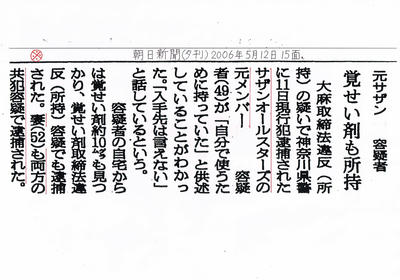 ※
朝日新聞(夕刊)2006年5月12日15面、
元サザン　　容疑者
覚せい剤も所持
大麻取締法違反（所
持）の疑いで神奈川県警
に11日現行犯逮捕された
サザンオールスターズの
元メンバー　　　容疑
者(49)が「自分で使うた
めに持っていた」と供述
していることがわかっ
た。「入手先は言えない」
と話しているという。
容疑者の自宅から
は覚せい剤約10㌘も見つ
かり、覚せい剤取締法違
反（所持）容疑でも逮捕
された。妻(52)も両方の
共犯容疑で逮捕された。